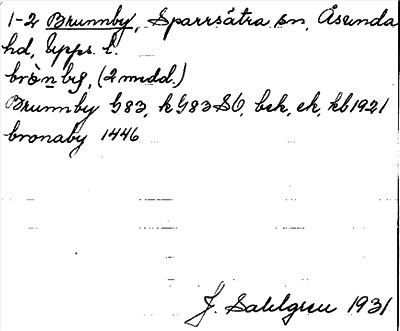 1-2 Brunnby, Sparrsätra sn, Åsunda
hd, Upps. l.
(2 medd.)
Brunnby G83, kG83 SÖ, bek, ek, kb 1921
bronaby 1446
J. Sahlgren 1931